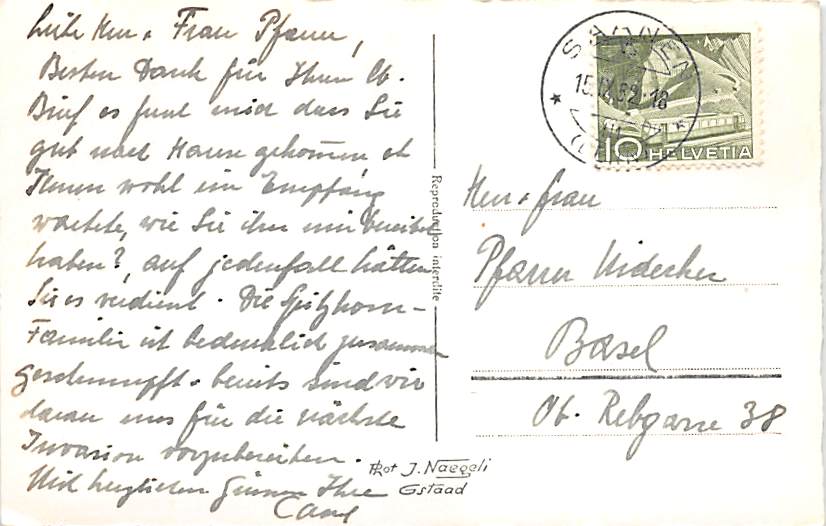 Liebe Herr & Frau Pfarrer,
Besten Dank für Ihren lb.
Brief es freut mich dass Sie
gut nach Hause gekommen ob
Ihnen wohl ein Empfang
wartete, wie Sie ihn mir
haben?, auf jedenfall hätten
Sie es verdient. Die Spitzhorn-
Familie ist bedenklich zusammen
geschrumpft & bereits sind wir
daran uns für die nächste
Invasion vorzubereiten.
Mit herzlichen Grüssen Ihre
Reproduction interdite
Phot J. Naegeli
Gstaad
15.IX.52.-18
10 HELVETIA
Herr & Frau
Pfarrer Nidecker
Basel
Ob. Rebgasse 38